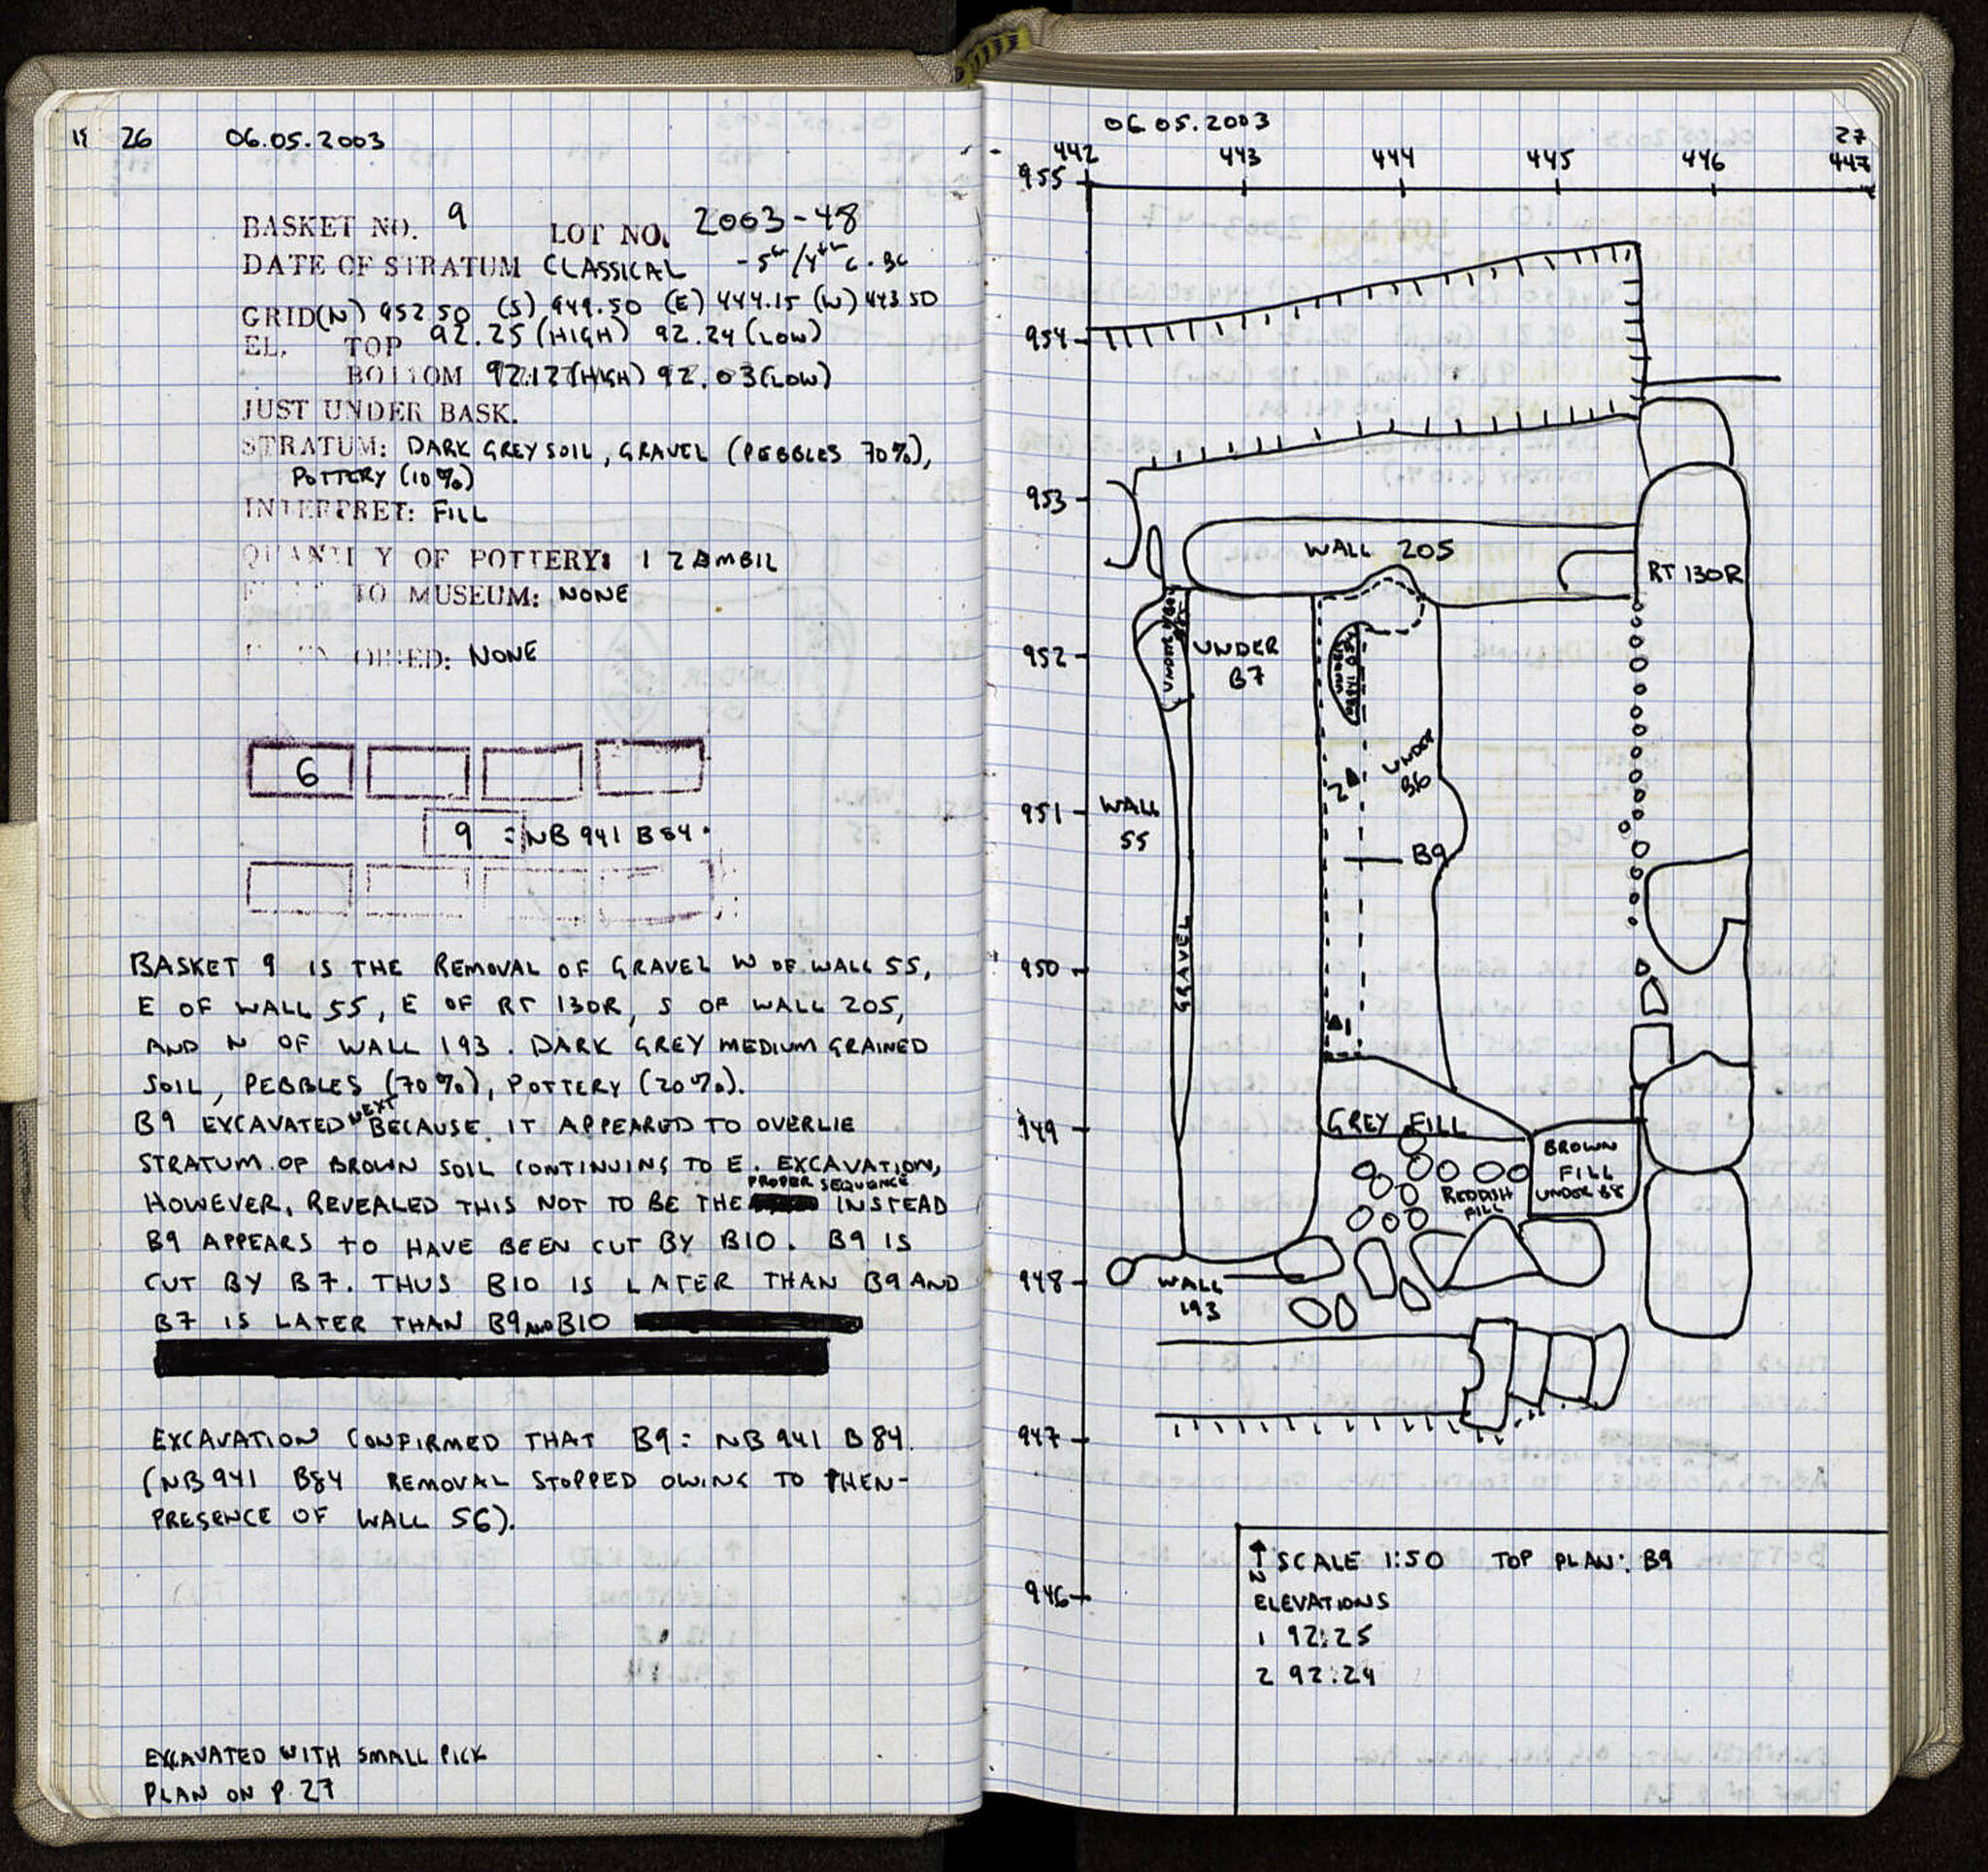 26 06.05.2003
BASKET NO. 9 LOT NO. 2003-48
DATE OF STRATUM CLASSICAL - 5th/4th C. BC
GRID(N) 952.50 (S) 949.50 (E) 444.15 (W) 443.50
EL. TOP 92.25 (HIGH) 92.24 (LOW)
BOTTOM 92.12 (HIGH) 92.03 (LOW)
JUST UNDER BASK.
STRATUM: DARK GREY SOIL, GRAVEL (PEBBLES 70%),
POTTERY (10%)
INTERPRET: FILL
QUANTITY OF POTTERY: 1 ZAMBIL
TO MUSEUM: NONE
NONE
6
9 = NB 941 B84.
BASKET 9 IS THE REMOVAL OF GRAVEL W OF WALL 55,
E OF WALL 55, E OF RT 130R, S OF WALL 205,
AND N OF WALL 193. DARK GREY MEDIUM GRAINED
SOIL, PEBBLES (70%), POTTERY (20%).
B9 EXCAVATED NEXT BECAUSE IT APPEARED TO OVERLIE
STRATUM OF BROWN SOIL CONTINUING TO E. EXCAVATION,
HOWEVER, REVEALED THIS NOT TO BE THE PROPER SEQUENCE INSTEAD
B9 APPEARS TO HAVE BEEN CUT BY B10. B9 IS
CUT BY B7. THUS B10 IS LATER THAN B9 AND
B7 IS LATER THAN B9 AND B10
EXCAVATION CONFIRMED THAT B9 = NB 941 B84.
(NB 941 B84 REMOVAL STOPPED OWING TO THEN-
PRESENCE OF WALL 56).
EXCAVATED WITH SMALL PICK
PLAN ON P. 27
06.05.2003 27
442 443 444 445 446 447
955
954
953
WALL 205
RT 130R
952
UNDER
B7
UNDER
B6
2
951
WALL
55
B9
950
GRAVEL
1
949
GREY FILL
BROWN
FILL
UNDER B8
REDDISH
FILL
948
WALL
193
947
946
N SCALE 1:50 TOP PLAN: B9
ELEVATIONS
1 92.25
2 92.24